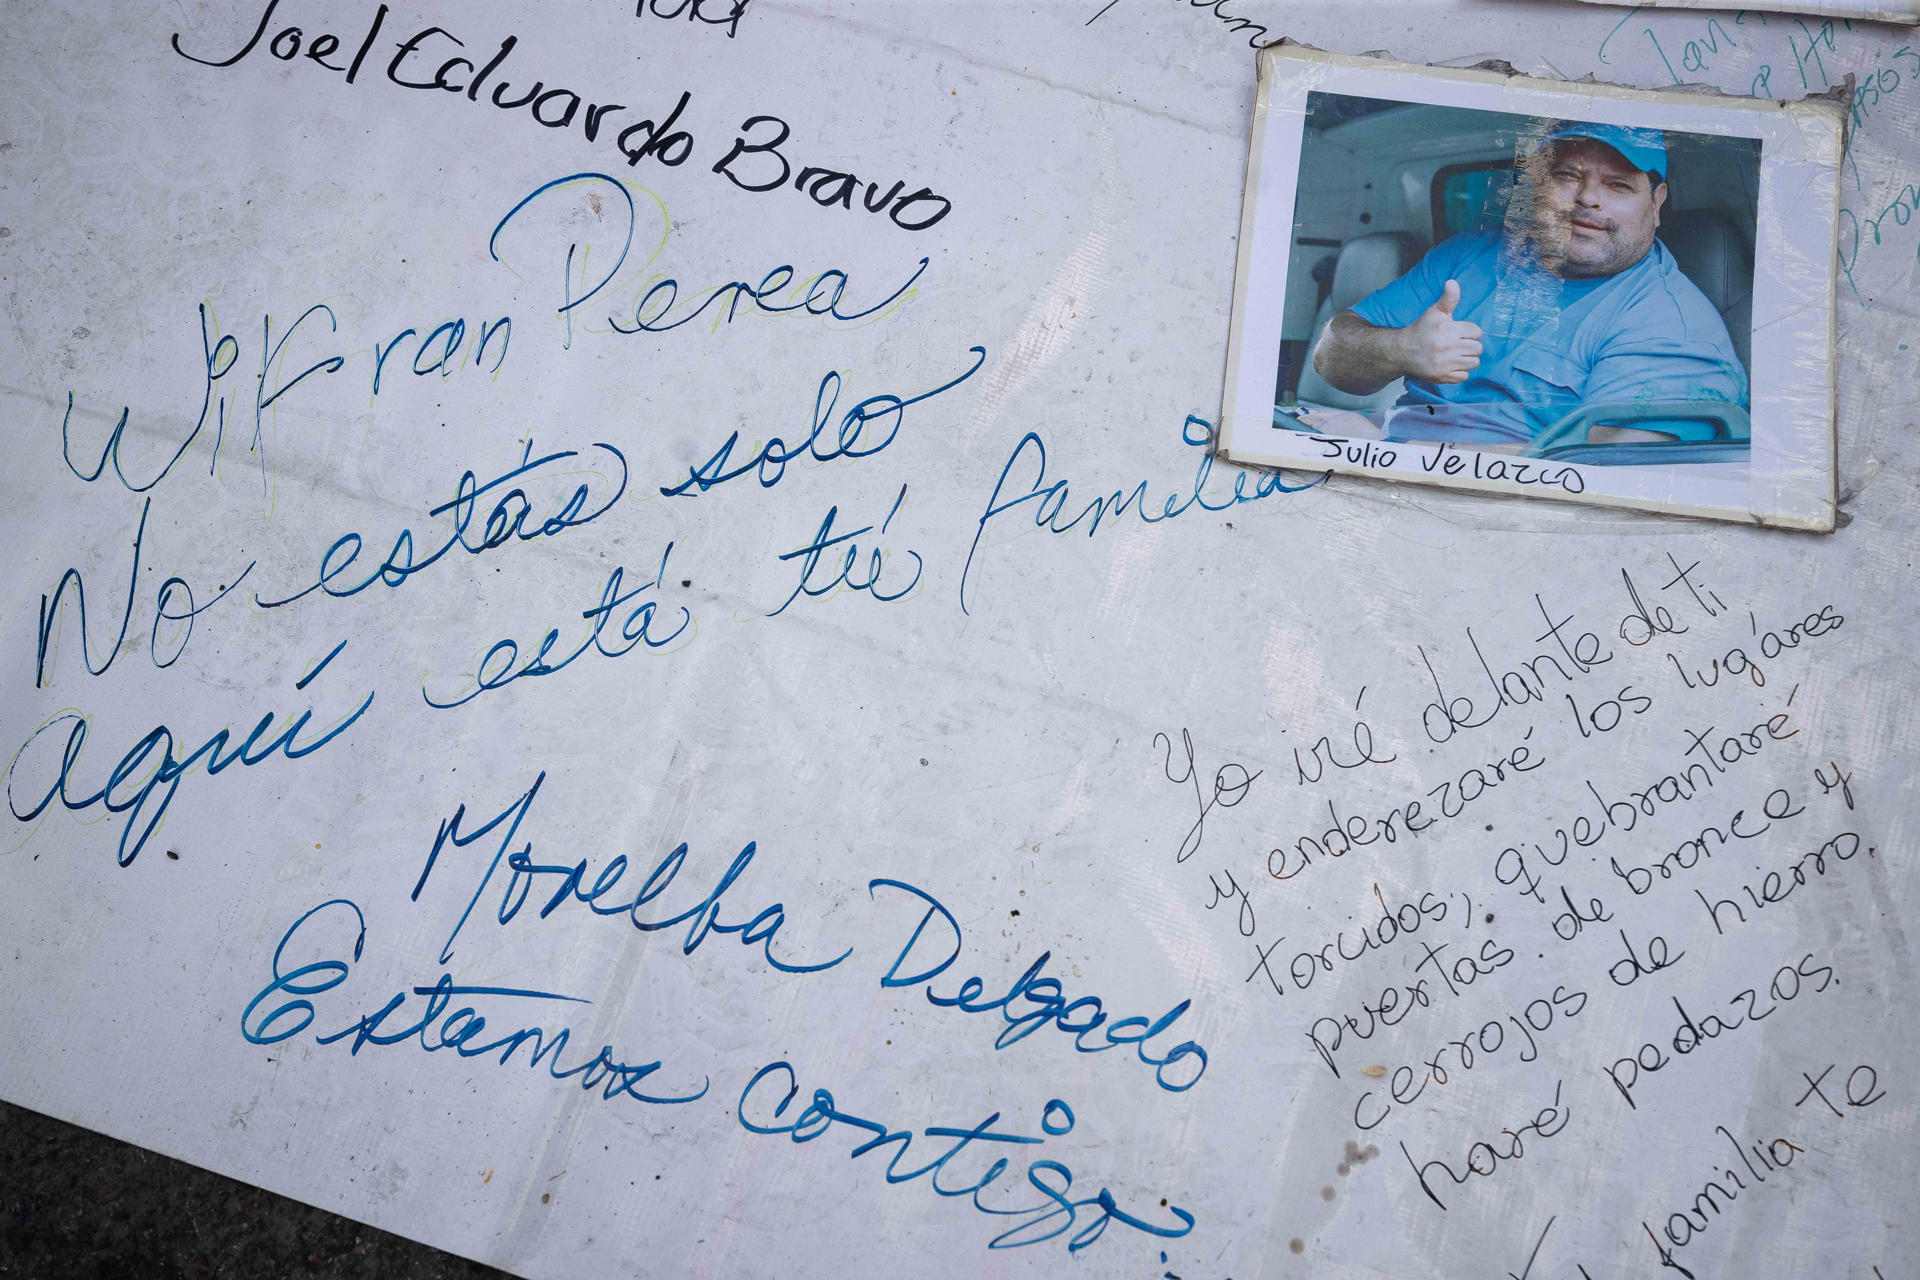 Joel Eduardo Bravo
Wilfran Perea
No estás solo
aquí está tú familia
Julio Velazco
Yo iré delante de ti
y enderezaré los lugáres
torcidos; quebrantaré
puertas de bronce y
cerrojos de hierro,
haré pedazos.
familia te
Morelba Delgado
Estamos contigo.